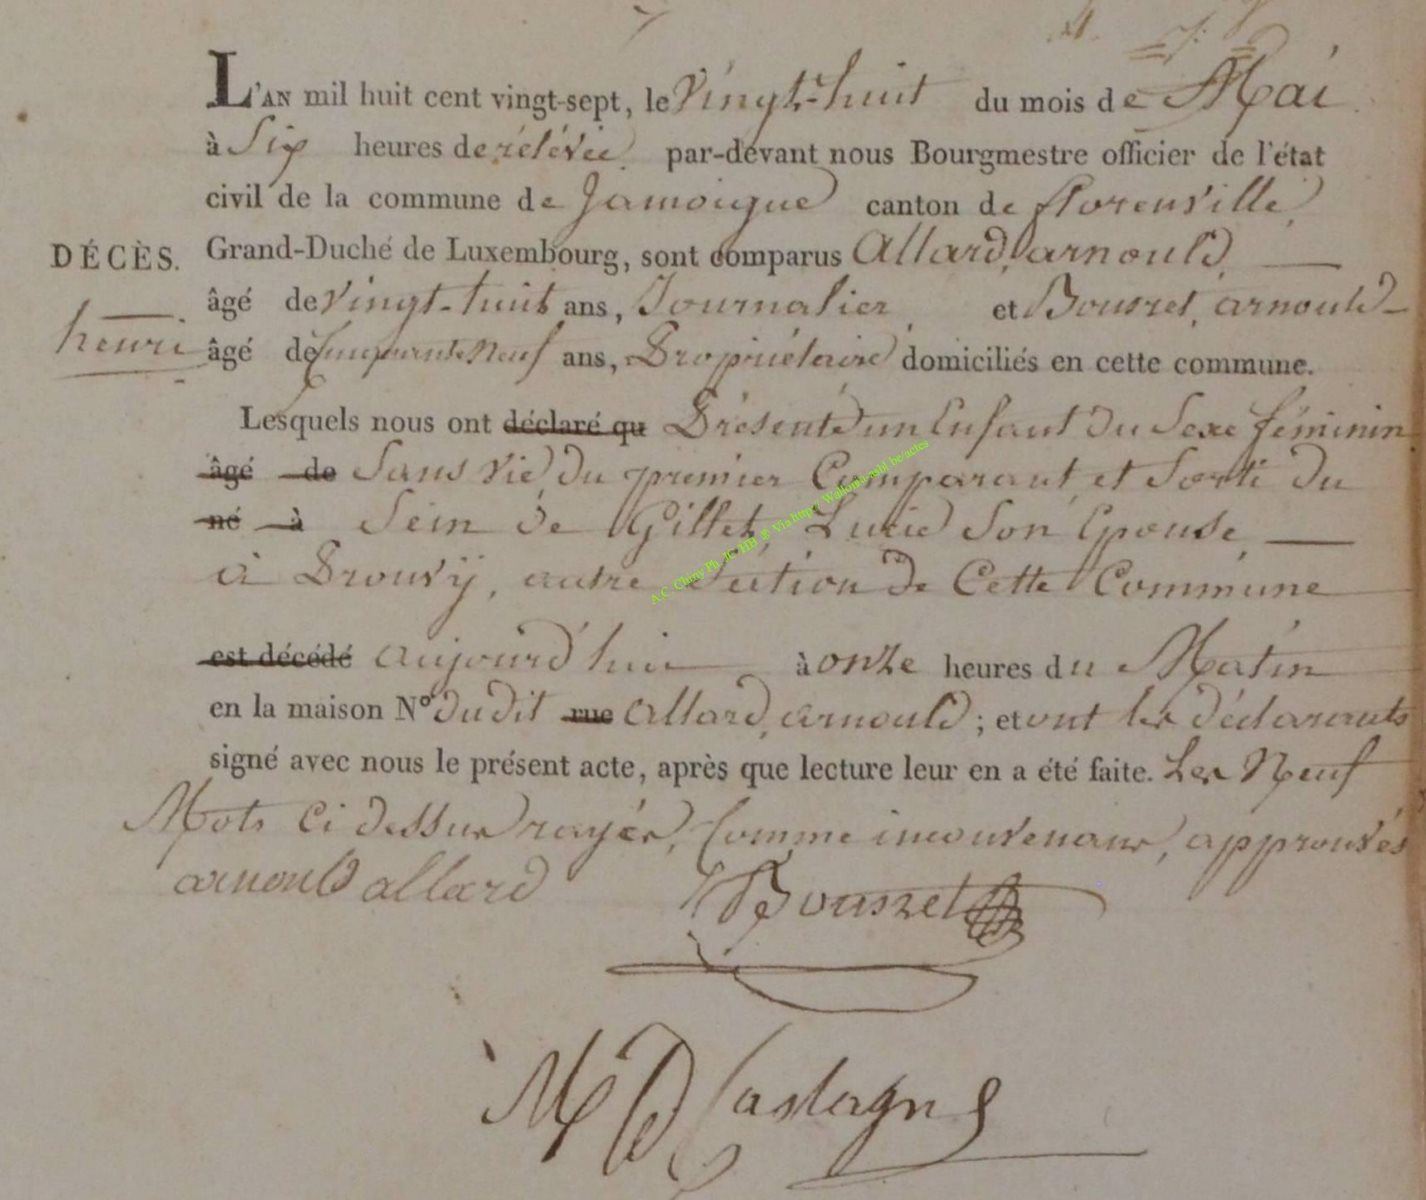 4.
L'AN mil huit cent vingt-sept, le Vingt-huit du mois de Mai
à Six heures de rélévée par-devant nous Bourgmestre officier de l'état
civil de la commune de Jamoigne canton de florenville,
DÉCÈS. Grand-Duché de Luxembourg, sont comparus Allard, arnould,
âgé de Vingt-huit ans, Journalier et Bousret, arnould
âgé de Cinquante Neuf ans, Propriétaire domiciliés en cette commune.
Lesquels nous ont déclaré qu Présenté un Enfant du Sexe féminin
âgé de Sans Vie, du premier Comparant, et Sorti du
né à Sein de Gillet, Lucie Son Epouse,
à Prouvÿ, autre Section de Cette Commune
est décédé aujourd'hui à onze heures du Matin
en la maison N° dudit rue Allard, arnould ; et ont les déclarants
signé avec nous le présent acte, après que lecture leur en a été faite. Les Neuf
Mots Ci dessus rayés, Comme inconvenans, approuvés
arnould allard Bousret